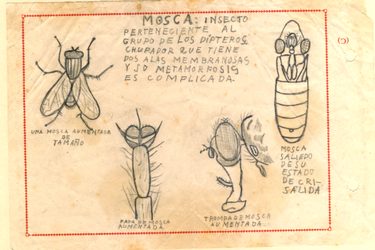 MOSCA: INSECTO
PERTENECIENTE AL
GRUPO DE LOS DÍPTEROS,
CHUPADOR QUE TIENE
DOS ALAS MEMBRANOSAS
Y SU METAMORFOSIS
ES COMPLICADA.
UNA MOSCA AUMENTADA
DE
TAMAÑO
PATA DE MOSCA
AUMENTADA
TROMPA DE MOSCA
AUMENTADA
MOSCA
SALIEDO
DE SU
ESTADO
DE CRI-
SALIDA